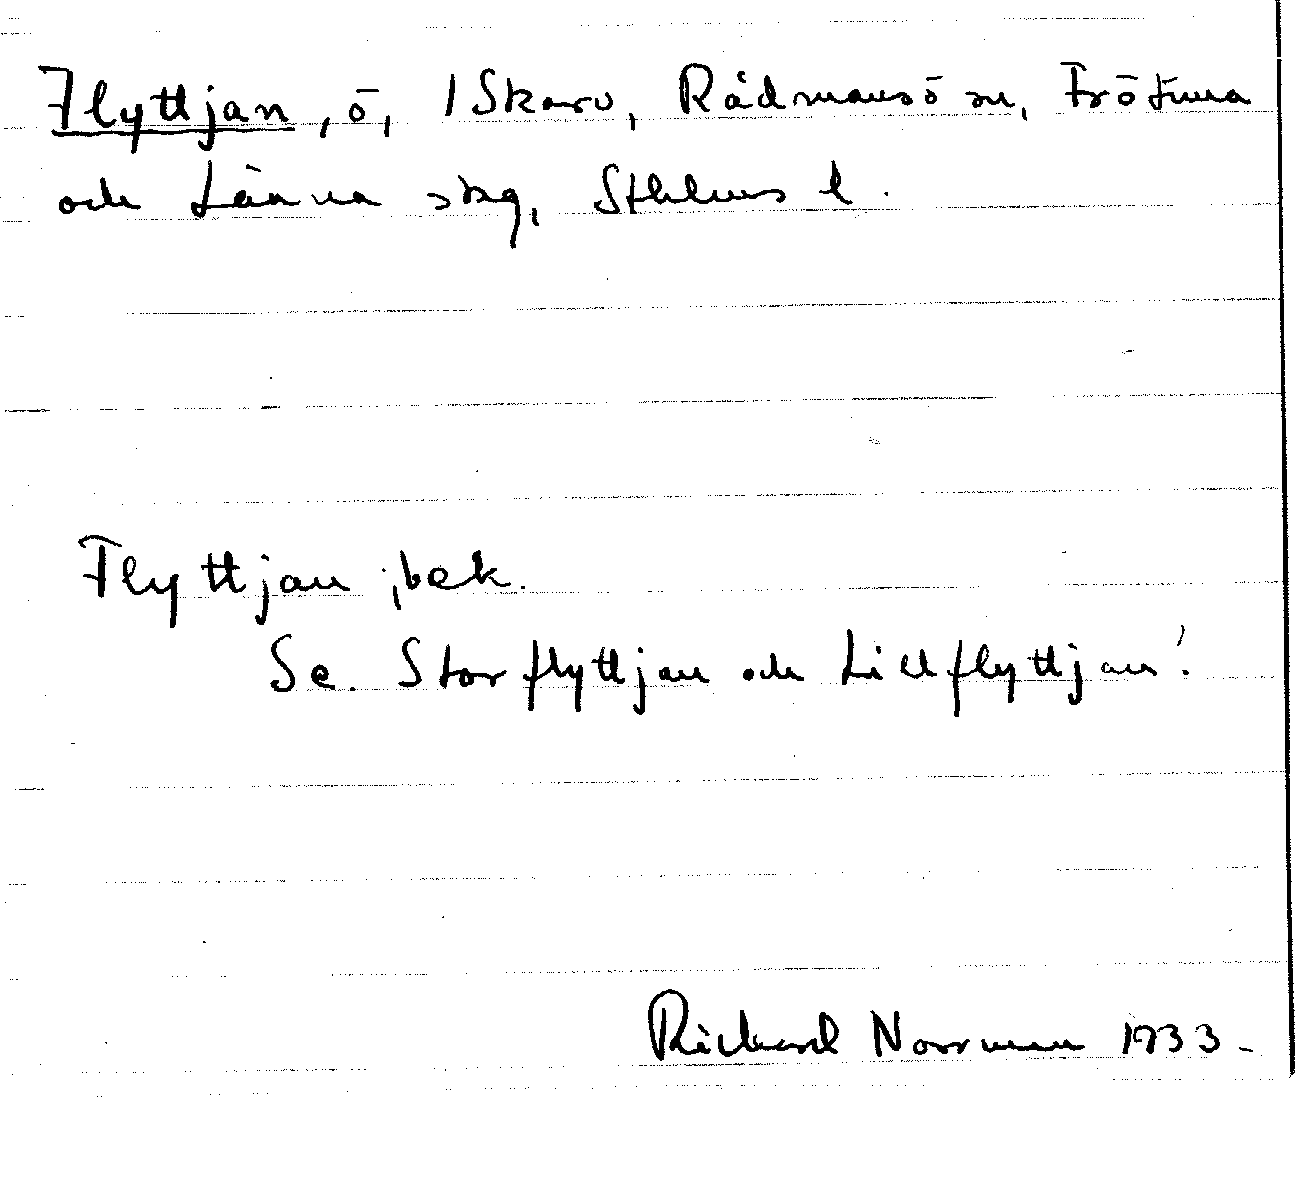 Flyttjan, ö, i Skarv, Rådmansö sn, Frötuna
och Länna skg, Sthlms l.
Flyttjan, bek.
Se. Storflyttjan och Lillflyttjan!
Rickard Norrman 1933.